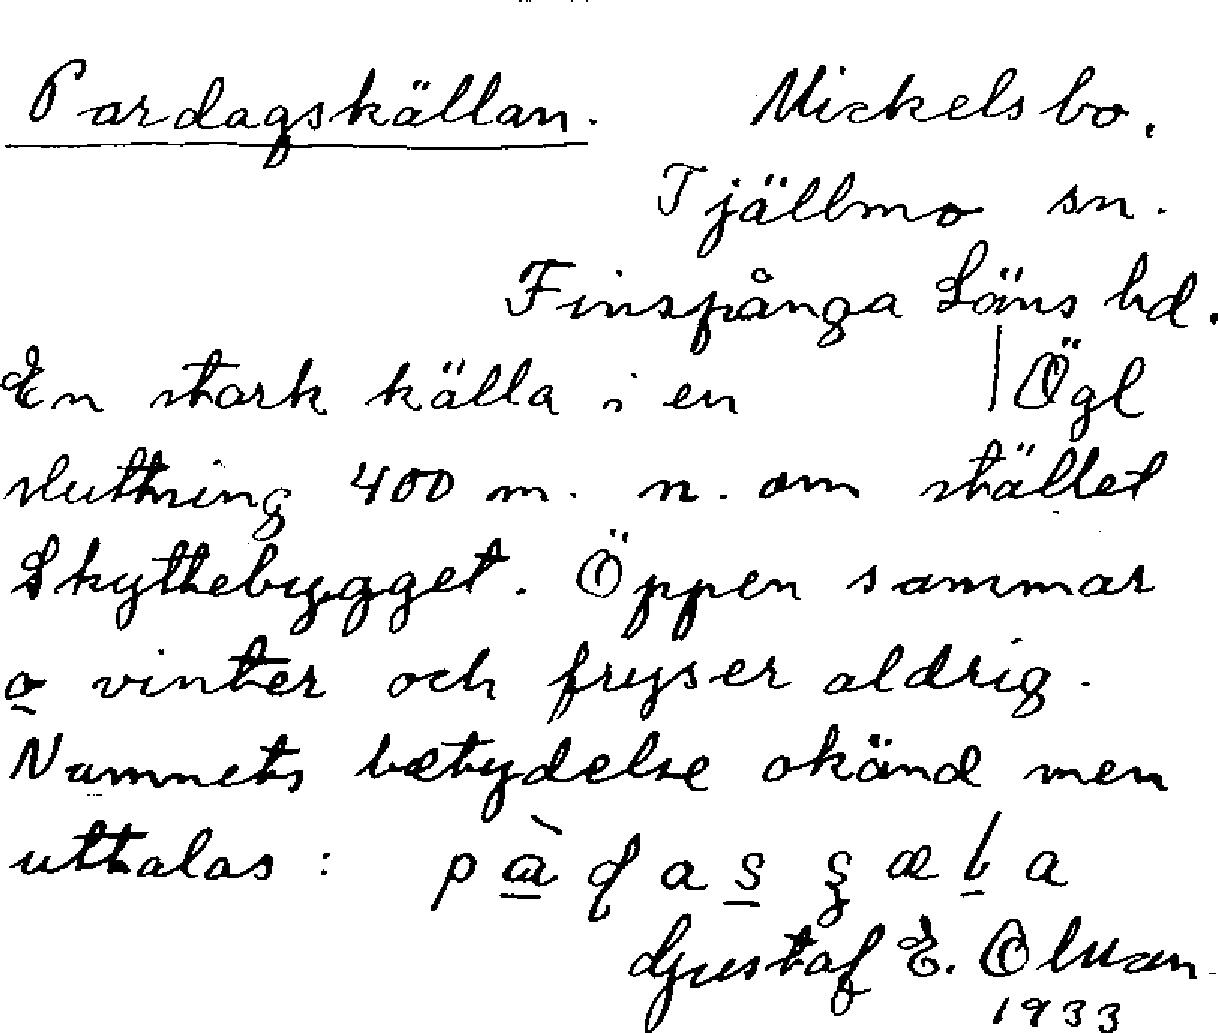 Pardagskällan. Mickelsbo.
Tjällmo sn.
Finspånga Läns hd.
En stark källa i en | Ögl
sluttning 400 m. n. om stället
Skyttebygget. Öppen sommar
o vinter och fryser aldrig.
Namnets betydelse okänd men
uttalas :
Gustaf E. Olsson
1933